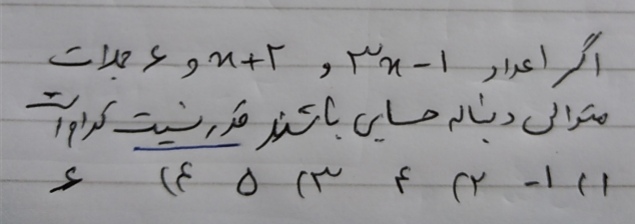 اگر اعداد ۳x-۱ و x+۲ و ۶ جملات
متوالی دنباله حسابی باشند قدرنسبت کدام است
۱) -۱ ۲) ۴ ۳) ۵ ۴) ۶